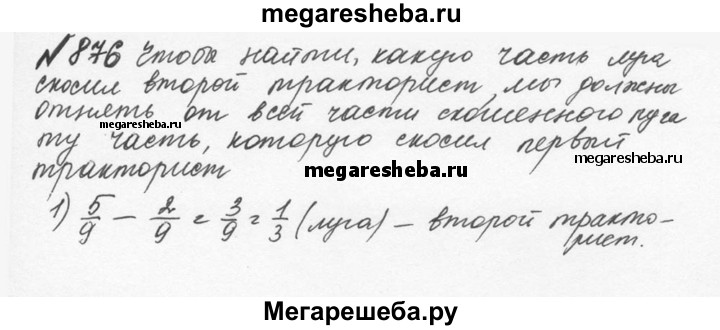 megaresheba.ru
№876 Чтобы найти, какую часть луга
скосил второй тракторист, мы должны
отнять от всей части скошенного луга
megaresheba.ru
ту часть, которую скосил первый
megaresheba.ru
megaresheba.ru
тракторист
1) 5/9 - 2/9 = 3/9 = 1/3 (луга) - второй тракто-
рист.
Мегарешеба.ру